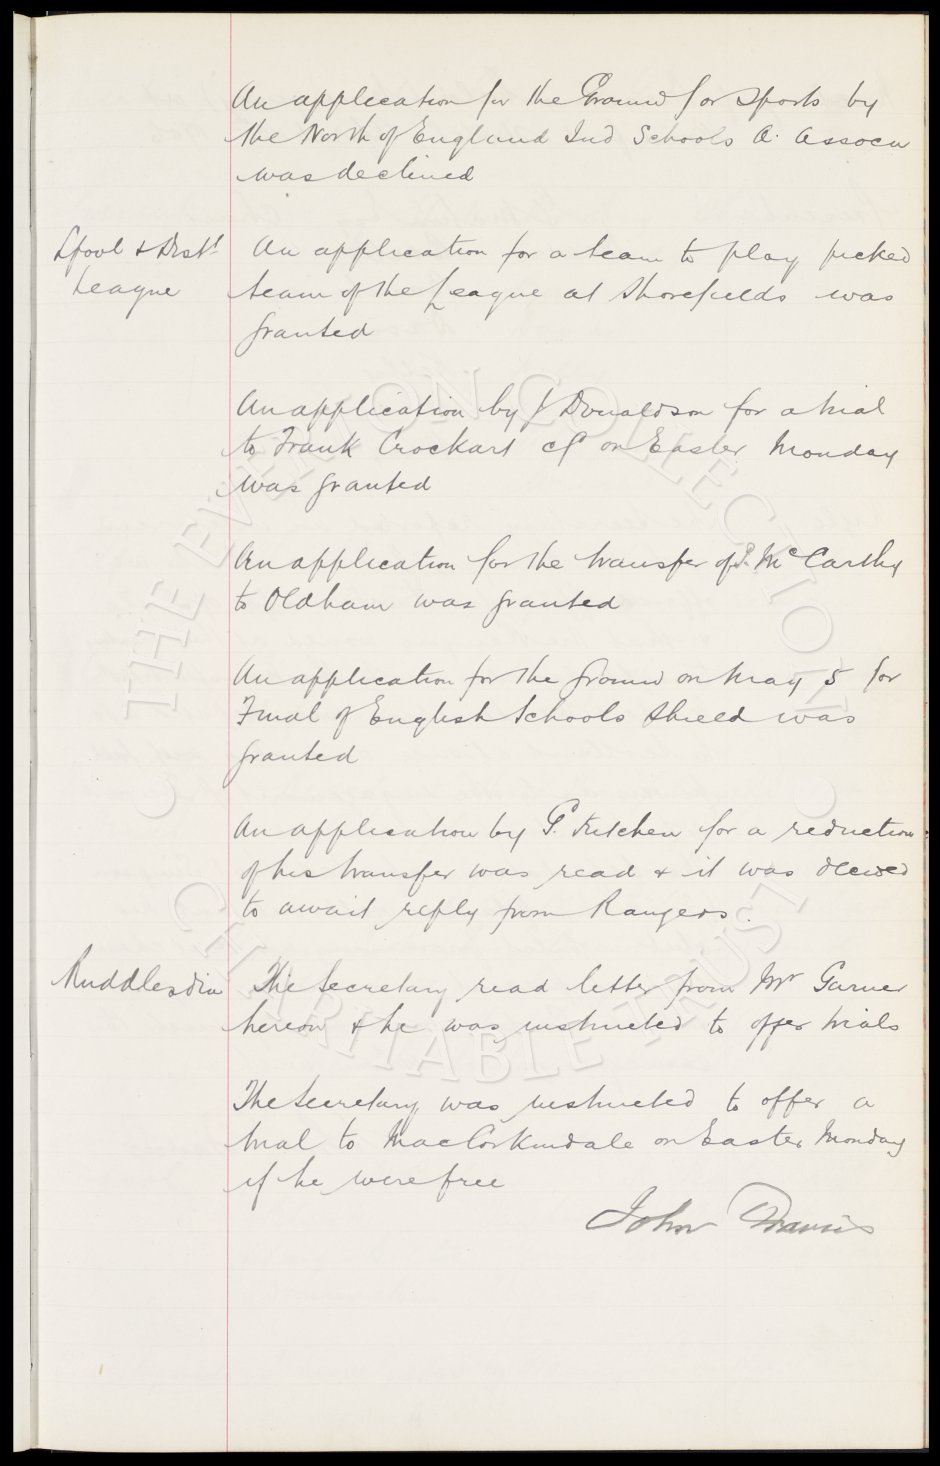 An application for the Ground for Sports by
the North of England Ind Schools A. Assocn
was declined
Lpool & Distt
League
An application for a team to play picked
team of the League at Shorefields was
granted
An application by J Donaldson for a trial
to Frank Crockart cf on Easter Monday
was granted
An application for the transfer of P. McCarthy
to Oldham was granted
An application for the ground on May 5 for
Final of English Schools Shield was
granted
An application by G. Kitchen for a reduction
of his transfer was read & it was decided
to await reply from Rangers.
Ruddlesdin
The Secretary read letter from Mr Garner
hereon & he was instructed to offer trials
The Secretary was instructed to offer a
trial to MacCorkindale on Easter Monday
if he were free
John Davies
THE EVERTON COLLECTION
CHARITABLE TRUST